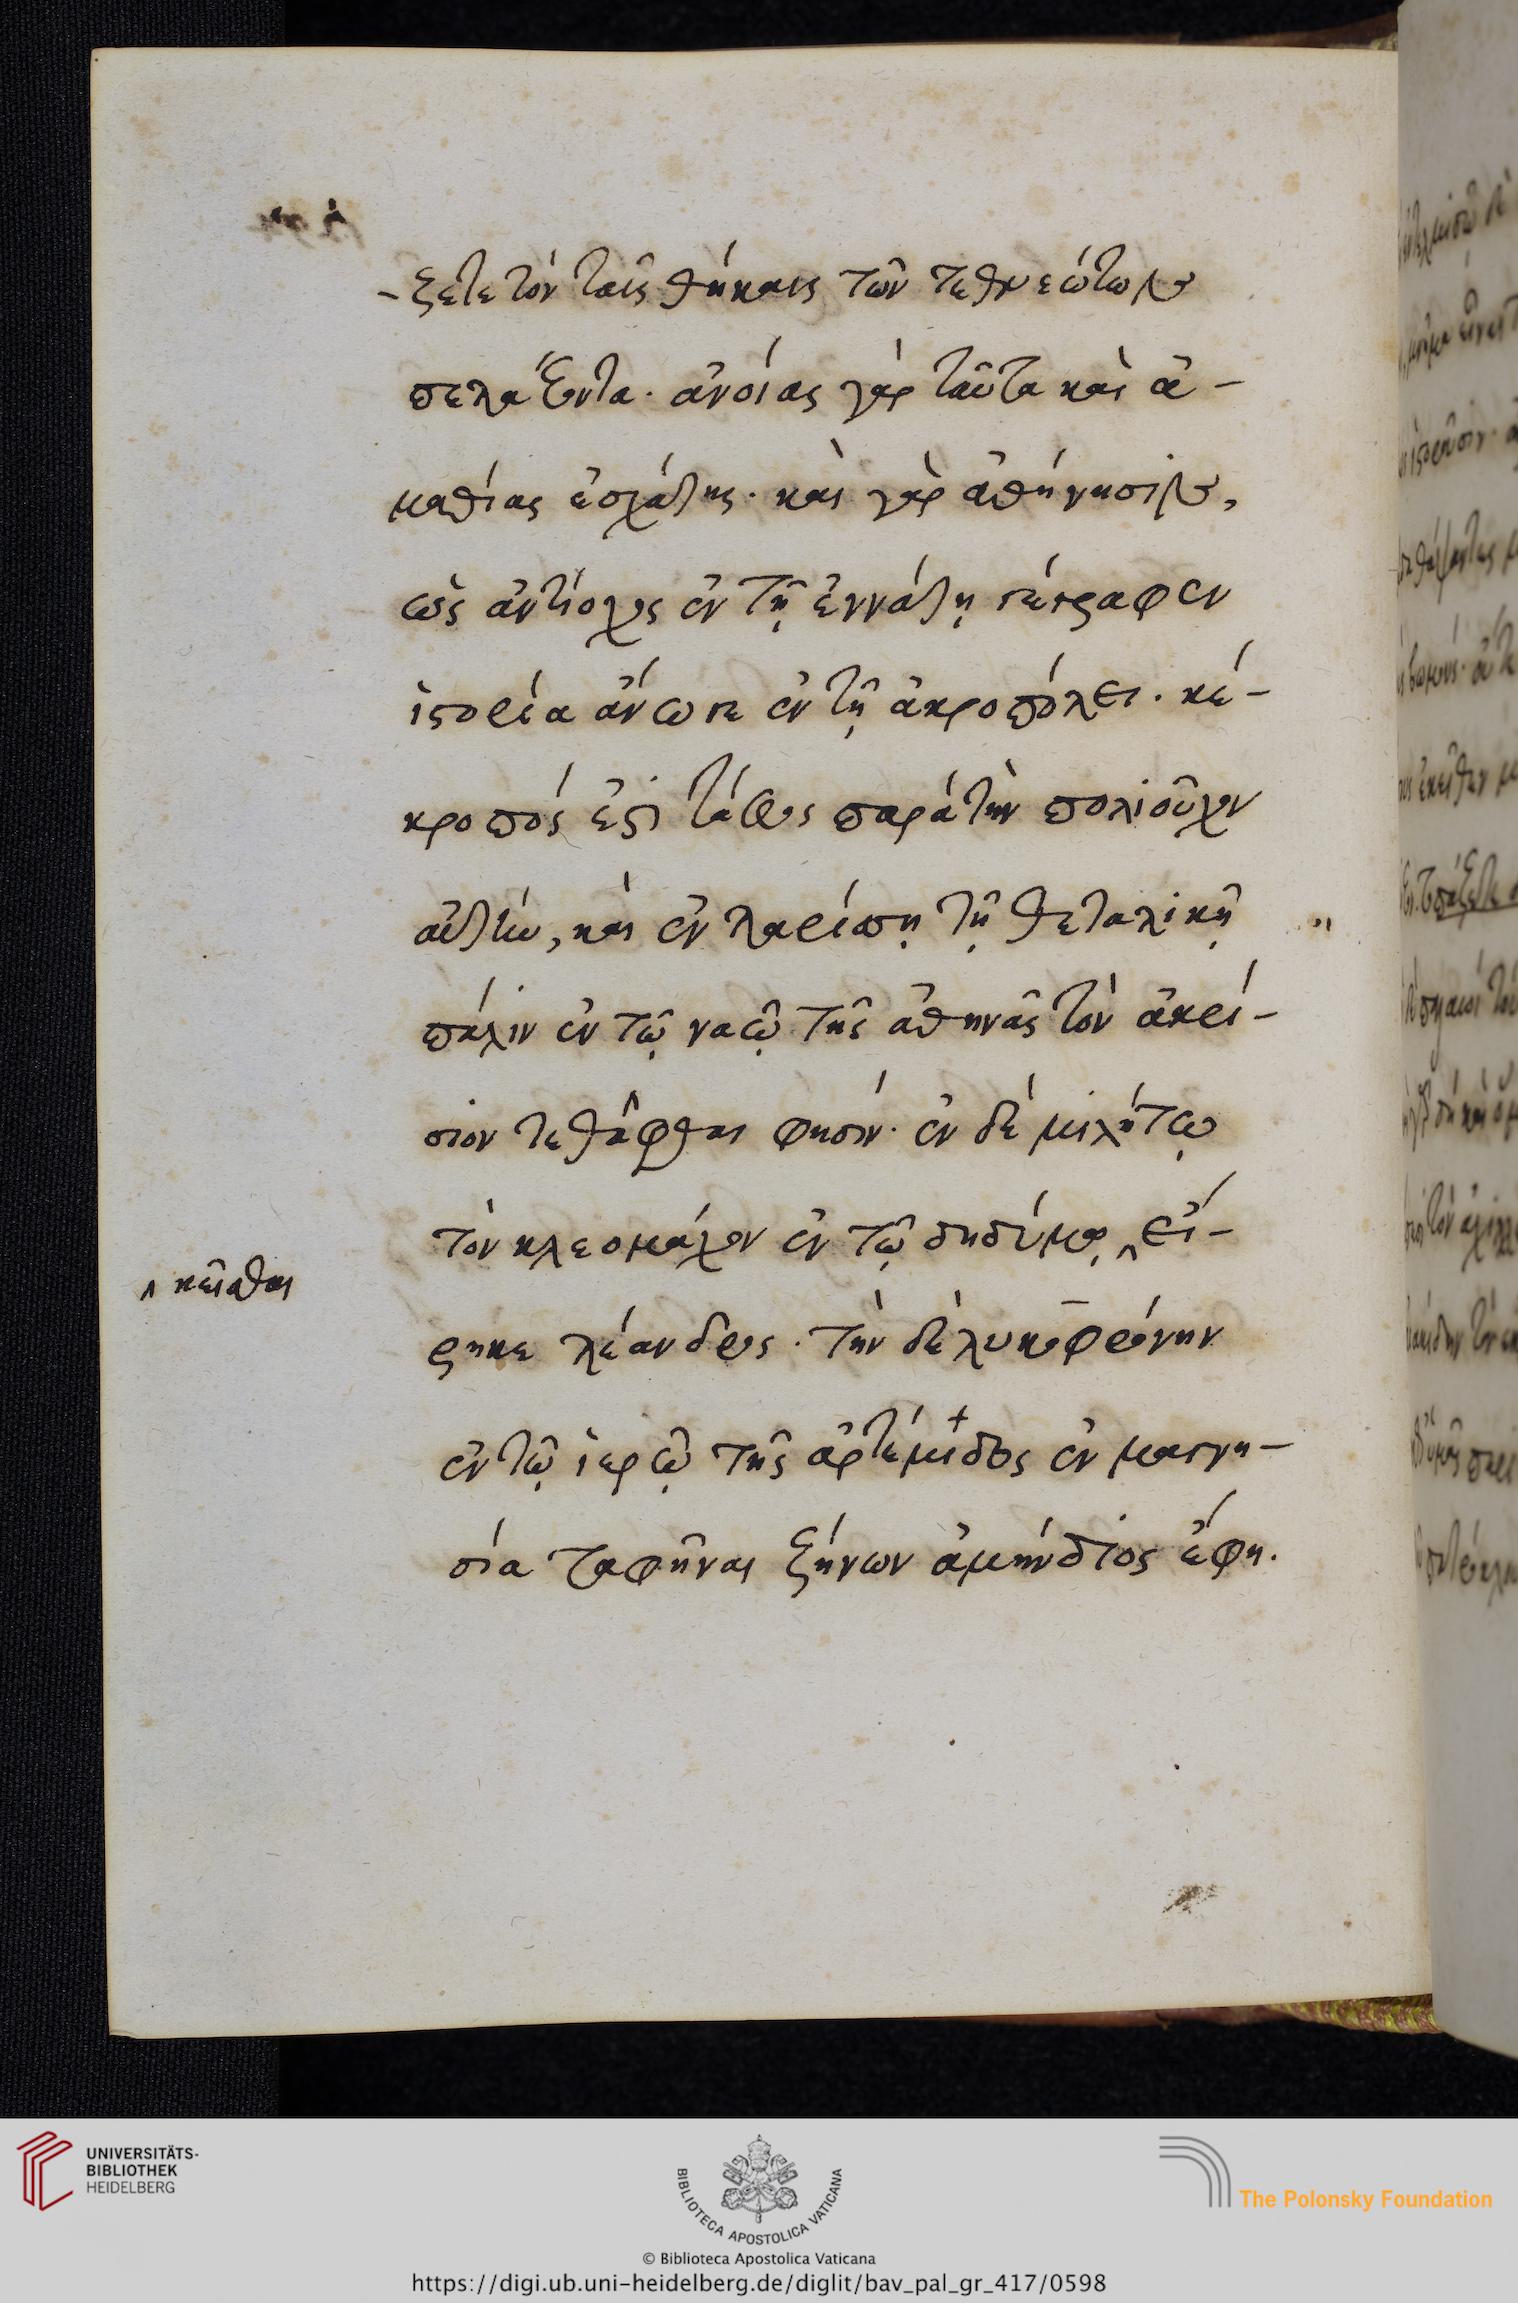 -ξέτε τὸν ταῖς θήκαις τῶν τεθνεώτων
πελάζοντα. ἀνοίας γὰρ ταῦτα καὶ ἀ-
μαθίας ἐσχάτης. καὶ γὰρ ἀθήνησιν,
ὡς ἀντίοχος ἐν τῇ ἐννάτῃ γέγραφεν
ἱστορία ἄνω γε ἐν τῇ ἀκροπόλει. κέ-
κροπός ἐστι τάφος παρὰ τὴν πολιοῦχον
αὐτὴν, καὶ ἐν λαρίσσῃ τῇ θεταλικῇ
πάλιν ἐν τῷ ναῷ τῆς ἀθηνᾶς τὸν ἀκρί-
σιον τεθάφθαι φησίν. ἐν δὲ μιλήτῳ
τὸν κλεομάχον ἐν τῷ διδύμῳ ‸ εἴ-
‸ κεῖσθαι
ρηκε λέανδρος. τὴν δὲ λυκοφρόνην
ἐν τῷ ἱερῷ τῆς ἀρτέμιδος ἐν μαγνη-
σία ταφῆναι ξήνων ἀμήνδιος ἔφη.
UNIVERSITÄTS-
BIBLIOTHEK
HEIDELBERG
BIBLIOTECA APOSTOLICA VATICANA
The Polonsky Foundation
© Biblioteca Apostolica Vaticana
https://digi.ub.uni-heidelberg.de/diglit/bav_pal_gr_417/0598